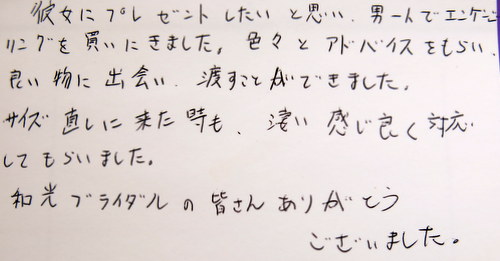 彼女にプレゼントしたいと思い、男一人でエンゲージ
リングを買いにきました。色々とアドバイスをもらい、
良い物に出会い、渡すことができました。
サイズ直しに来た時も、凄い感じ良く対応
してもらいました。
和光ブライダルの皆さんありがとう
ございました。